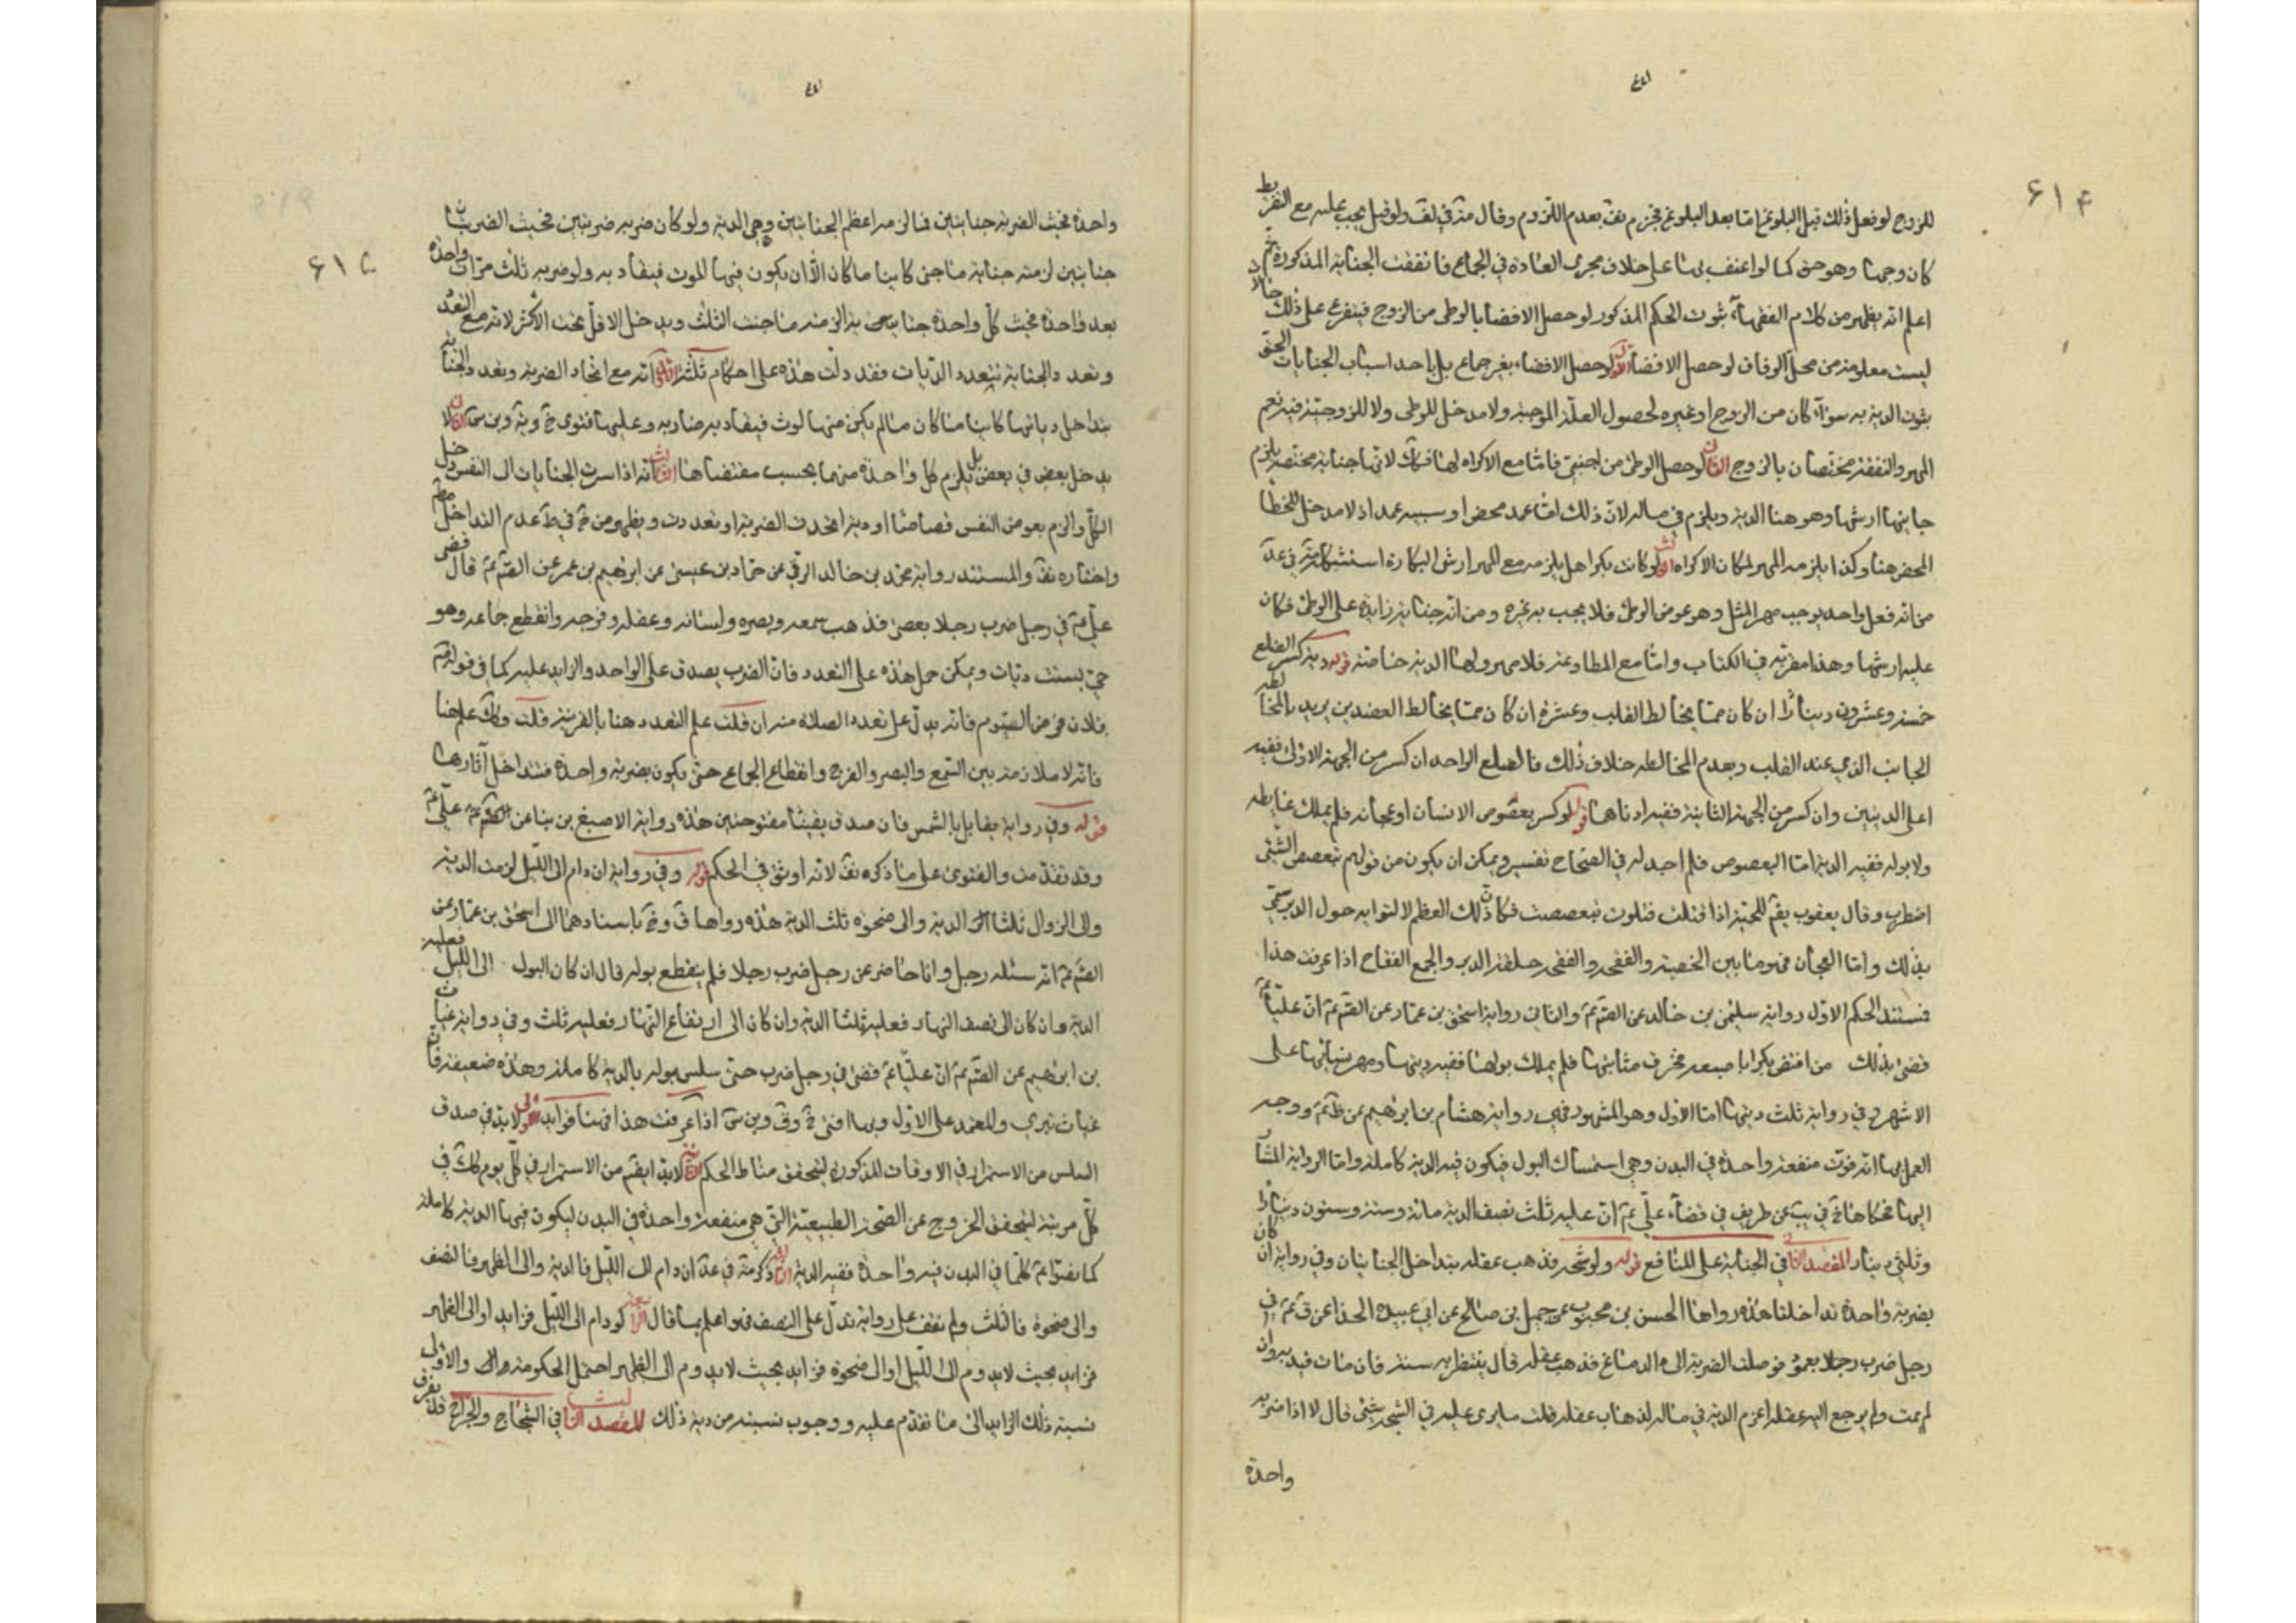 للزوج لو فعل ذلك قبل البلوغ امّا بعد البلوغ فجزم بعدم اللزوم وقال في ولو قيل يجب عليه مع التفريط
كان وجها وهو حق كما لو اعنف بها على خلاف مجرى العادة في الجماع فاتفقت الجناية المذكورة ثم
اعلم انه يظهر من كلام الفقهاء ثبوت الحكم المذكور لو حصل الافضا بالوطى من الزوج فيتفرع على ذلك
ليست معلومة من محل الوفاق لو حصل الافضا الاول لو حصل الافضاء بغير جماع بل باحد اسباب الجنايات
ثبوت الدية به سواء كان من الزوج او غيره لحصول العلة الموجبة ولا مدخل للوطى ولا للزوجية فيه نعم
المهر والنفقة مختصان بالزوج الثانى لو حصل الوطى من اجنبى فاما مع الاكراه لها فكذلك لانها جناية مختصة يلزم
جانيها ارشها وهو هنا الدية ويلزم في ماله لان ذلك اما عمد محض او شبيه عمد اذ لا مدخل للخطا
المحض هنا وكذا يلزمه المهر لمكان الاكراه الثالث لو كانت بكرا هل يلزمه مع المهر ارش البكارة استشكله في عد
من انه فعل واحد يوجب مهر المثل وهو عوض الوطى فلا يجب به غيره ومن انه جناية زايدة على الوطى فكان
عليه ارشها وهذا مقربه في الكتاب واما مع المطاوعة فلا مهر ولها الدية خاصة قوله دية كسر الضلع
خمسة وعشرون دينارا ان كان مما يخالط القلب وعشرة ان كان مما يخالط العضدين يريد بالمخالطة
الجانب الذي عند القلب وبعدم المخالطة خلاف ذلك فالضلع الواحد ان كسر من الجهة الاولى ففيه
اعلى الديتين وان كسر من الجهة الثانية ففيه ادناها قوله لو كسر بعصوص الانسان او عجانه فلم يملك غايطه
ولا بوله ففيه الدية اما البعصوص فلم اجد له في الصحاح تفسير ويمكن ان يكون من قولهم تبعصص الشئ
اضطرب وقال يعقوب يقال للحية اذا قتلت فتلوت تبعصصت فكان ذلك العظم لالتوايه حول الدبر سمّى
بذلك واما العجان فهو ما بين الخصية والفقحة والفقحة حلقة الدبر والجمع الفقاح اذا عرفت هذا
فمستند الحكم الاول رواية سليمن بن خالد عن الصّم عم والثانى رواية اسحق بن عمار عن الصّم عم ان عليا عم
قضى بذلك من افتض بكرا باصبعه فخرق مثانتها فلم يملك بولها ففيه ديتها ومهر نسائها على
الاشهر وفي رواية ثلث ديتها اما الاول وهو المشهور فهي رواية هشام بن ابرهيم عن عم ووجه
العمل بها انه فوت منفعة واحدة في البدن وهي استمساك البول فيكون فيه الدية كاملة واما الرواية المشار
اليها فحكاها في يب عن طريف في قضاء على عم ان عليه ثلث نصف الدية ماية وستة وستون دينارا
وثلثى دينار المقصد الثانى في الجناية على المنافع قوله ولو شجه فذهب عقله يتداخل الجنايتان وفي رواية ان كان
بضربة واحدة تداخلتا هذه رواها الحسن بن محبوب عن جميل بن صالح عن ابي عبيدة الحذا عن عم في
رجل ضرب رجلا بعمود فوصلت الضربة الى الدماغ فذهب عقله قال ينتظر به سنة فان مات قيد به وان
لم يمت ولم يرجع اليه عقله اغرم الدية في ماله لذهاب عقله قلت ما يرى عليه في الشجة شئ قال لا اذا ضربه
واحدة
واحدة فجنت الضربة جنايتين فالزمه اعظم الجنايتين وهى الدية ولو كان ضربه ضربتين فجنت الضربتان
جنايتين لزمته جناية ما جنى كاينا ما كان الا ان يكون فيها الموت فيقاد به ولو ضربه ثلث مرات واحدة
بعد واحدة فجنت كل واحدة جناية الزمته ما جنت الثلث ويدخل الاقل تحت الاكثر لانه مع التعدد
وتعدد الجناية تتعدد الديات فقد دلت هذه على احكام ثلثة الاول انه مع اتحاد الضربة وتعدد الجناية
يتداخل دياتها كاينا ما كان ما لم يكن منها لوث فيقاد به ضاربه وعليها فتوى الثانى لا
يدخل بعض في بعض بل يلزم كل واحدة منهما بحسب مقتضاها الثالث انه اذا سرت الجنايات الى النفس دخل
الكل والزم بعوض النفس قصاصا او دية اتحدت الضربة او تعددت ويظهر من في عدم التداخل
واختاره والمستند رواية محمد بن خالد البرقي عن حماد بن عيسى عن ابرهيم بن عمر عن الصّم عم قال قضى
على عم في رجل ضرب رجلا بعصى فذهب سمعه وبصره ولسانه وعقله وفرجه وانقطع جماعه وهو
حى بست ديات ويمكن حمل هذه على التعدد فان الضرب يصدق على الواحد والزايد عليه كما في قولهم
فانه لا ملازمة بين السمع والبصر والفرج وانقطاع الجماع حتى يكون بضربة واحدة فتتداخل آثارها
قوله وفي رواية يقابل بالشمس فان صدق بقيتا مفتوحتين هذه رواية الاصبغ بن نباتة عن على عم
وقد تقدمت والفتوى على ما ذكره لانه اوثق في الحكم قوله وفي رواية ان دام الى الليل لزمت الدية
والى الزوال ثلثا الدية والى ضحوة ثلث الدية هذه رواها باسنادهما الى اسحق بن عمار عن
الصّم عم انه سئله رجل وانا حاضر عن رجل ضرب رجلا فلم ينقطع بوله قال ان كان البول الى الليل فعليه
الدية وان كان الى نصف النهار فعليه ثلثا الدية وان كان الى ارتفاع النهار فعليه ثلث وفي رواية غياث
بن ابرهيم عن الصّم عم ان عليا عم قضى في رجل ضرب حتى سلس بوله بالدية كاملة وهذه ضعيفة فان
غياث تبري والمعتمد على الاول وبها افتى اذا عرفت هذا فهنا فوايد الاولى لابد في صدق
السلس من الاستمرار في الاوقات المذكورة ليتحقق مناط الحكم الثانية لابد ايضا من الاستمرار في كل يوم كذلك في
كل مرتبة ليتحقق الخروج عن الصحة الطبيعية التي هى منفعة واحدة في البدن ليكون فيها الدية كاملة
كما نصوا عم كلما في البدن فيه واحدة ففيه الدية الثالثة ذكر في عد ان دام الى الليل فالدية والى الظهر فالنصف
والى ضحوة فالثلث ولم نقف على رواية تدل على النصف فهو اعلم بما قال الرابعة لو دام الى الليل فزايد او الى الظهر
فزايد بحيث لا يدوم الى الليل او الى ضحوة فزايد بحيث لا يدوم الى الظهر احتمل الحكومة والاولى
نسبة ذلك الزايد الى ما تقدم عليه ووجوب نسبته من دية ذلك المقصد الثالث في الشجاج والجراح